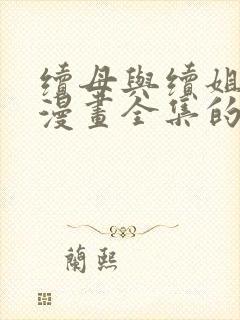 續母與續姐
漫畫全集的
蘭熙